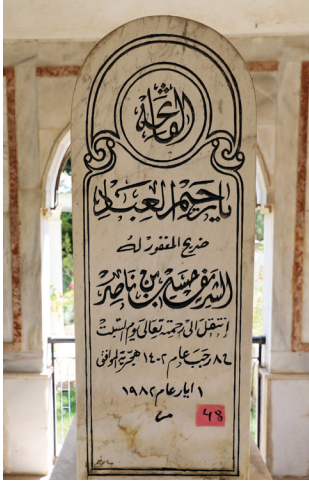 الفاتحة
يا رحيم العباد
ضريح المغفور له
الشريف حسين بن ناصر
انتقل الى رحمته تعالى يوم السبت
٨ رجب عام ١٤٠٢ هجرية الموافق
١ ايار عام ١٩٨٢
م
48